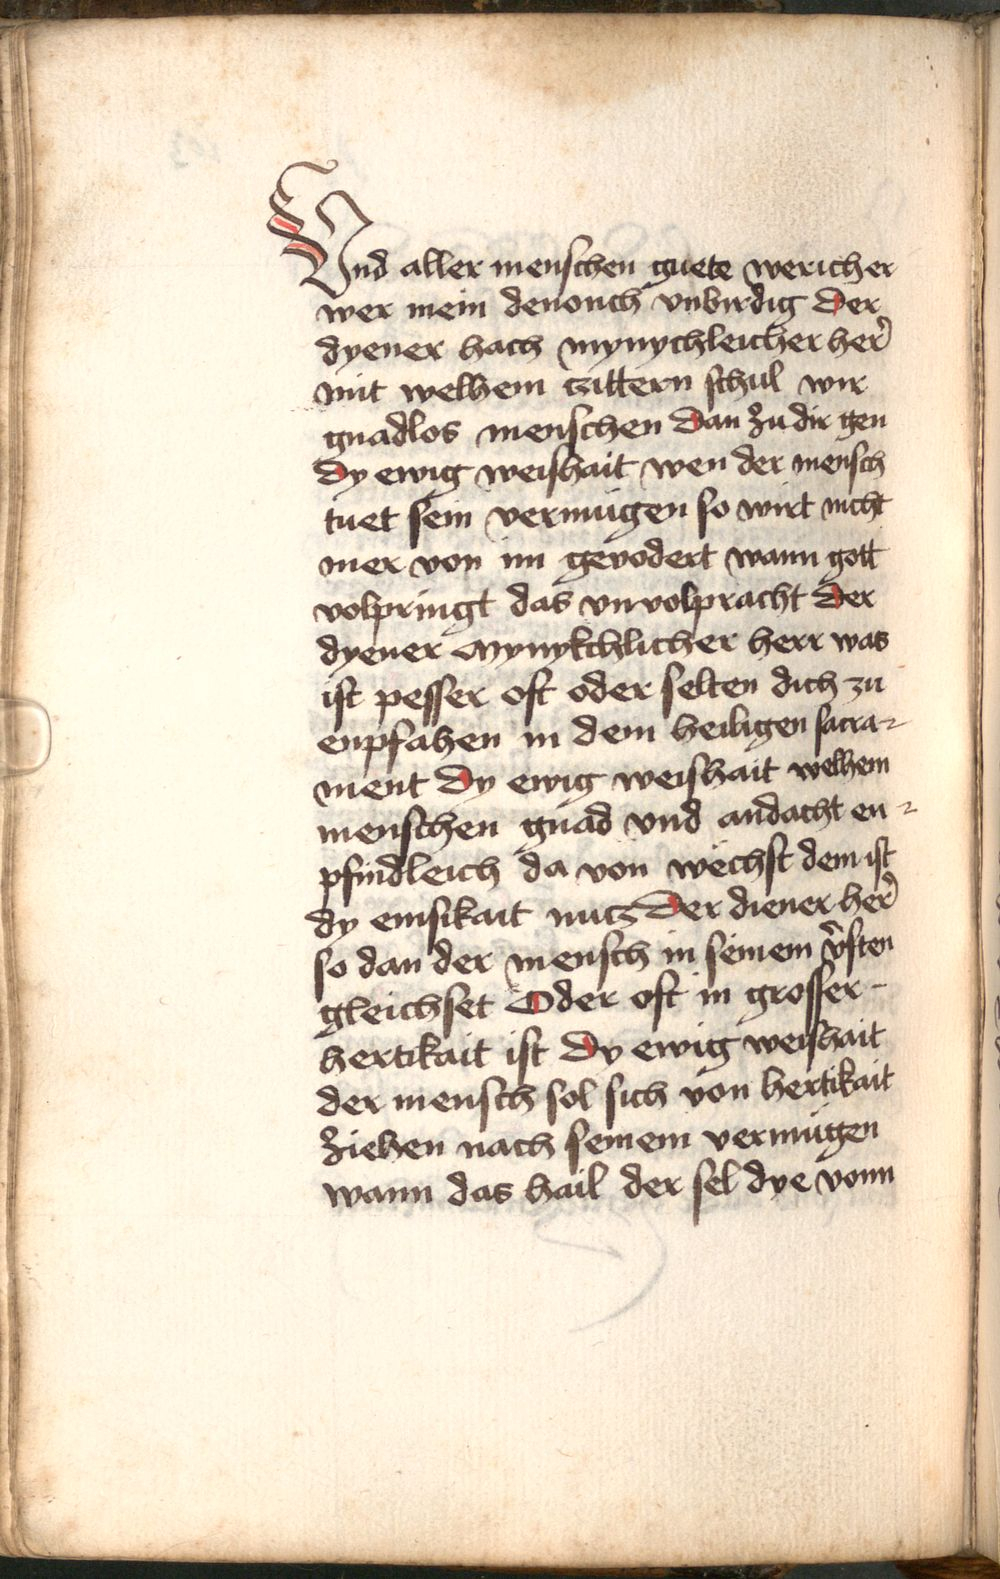 Vnd aller menschen guete wericher
wer mein denonch vnbirdig Der
dyener hach mynychleicher her̃
mit welhem tzittern schul wir
gnadlos menschen Dan zu dir gen
Dy ewig weishait wen der mensch
tuet sein vermügen so wirt nicht
mer von im gevodert wann gott
volpringt das vnvolpracht Der
dyener Mynykchlicher herr was
ist pesser oft oder selten dich zu
enpfahen in dem heiligen sacra-
ment Dy ewig weishait welhem
menschen gnad vnd andacht en-
pfindleich da von wechst dem ist
dy emsikait nutz Der diener her̃
so dan der mensch in seinem
gleichset Oder oft in grosser-
hertikait ist Dy ewig weishait
der mensch sol sich von hertikait
ziehen nach seinem vermügen
wann das hail der sel dye vonn